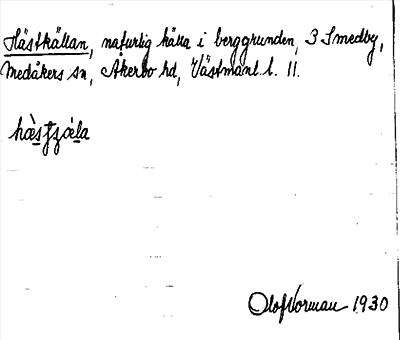 Hästkällan, naturlig källa i berggrunden, 3 Smedby,
Medåkers sn, Åkerbo hd, Västmanl. l. 11.
hæ̀stʃæ̀la
Olof Norman 1930